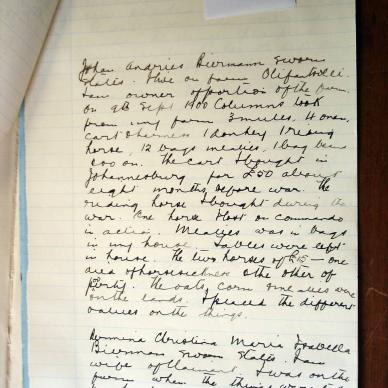 Johan Andries Biermann Sworn
States. I live on farm Olifantsvlei.
I am owner of portion of the farm.
on 9th Sept 1900 Columns took
from my farm 3 mules, 4 oxen,
cart & harness 1 donkey 1 riding
horse, 12 bags mealies, 1 bag
on. The cart I bought in
Johannesburg for £50 about
eight months before war. The
riding horse I bought during the
war. One horse I lost on commando
in action. Mealies was in bags
in my house. Tables were left
in house. The two horses of £15 – one
died of horsesickness & the other of
. The oats, corn mealies were
on the lands. I placed the different
values on the things.
Hermina Christina Maria Isabella
Bierman Sworn States. I am
wife of Claimant. I was on the
farm when the things were